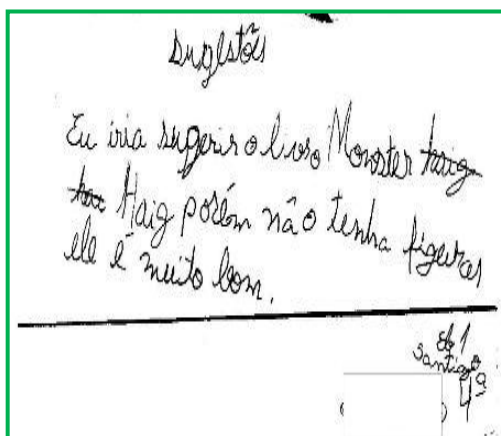 Sugestões
Eu iria sugerir o livro Monster
Haig porém não tenha figuras
ele é muito bom.
Santiago
4ª